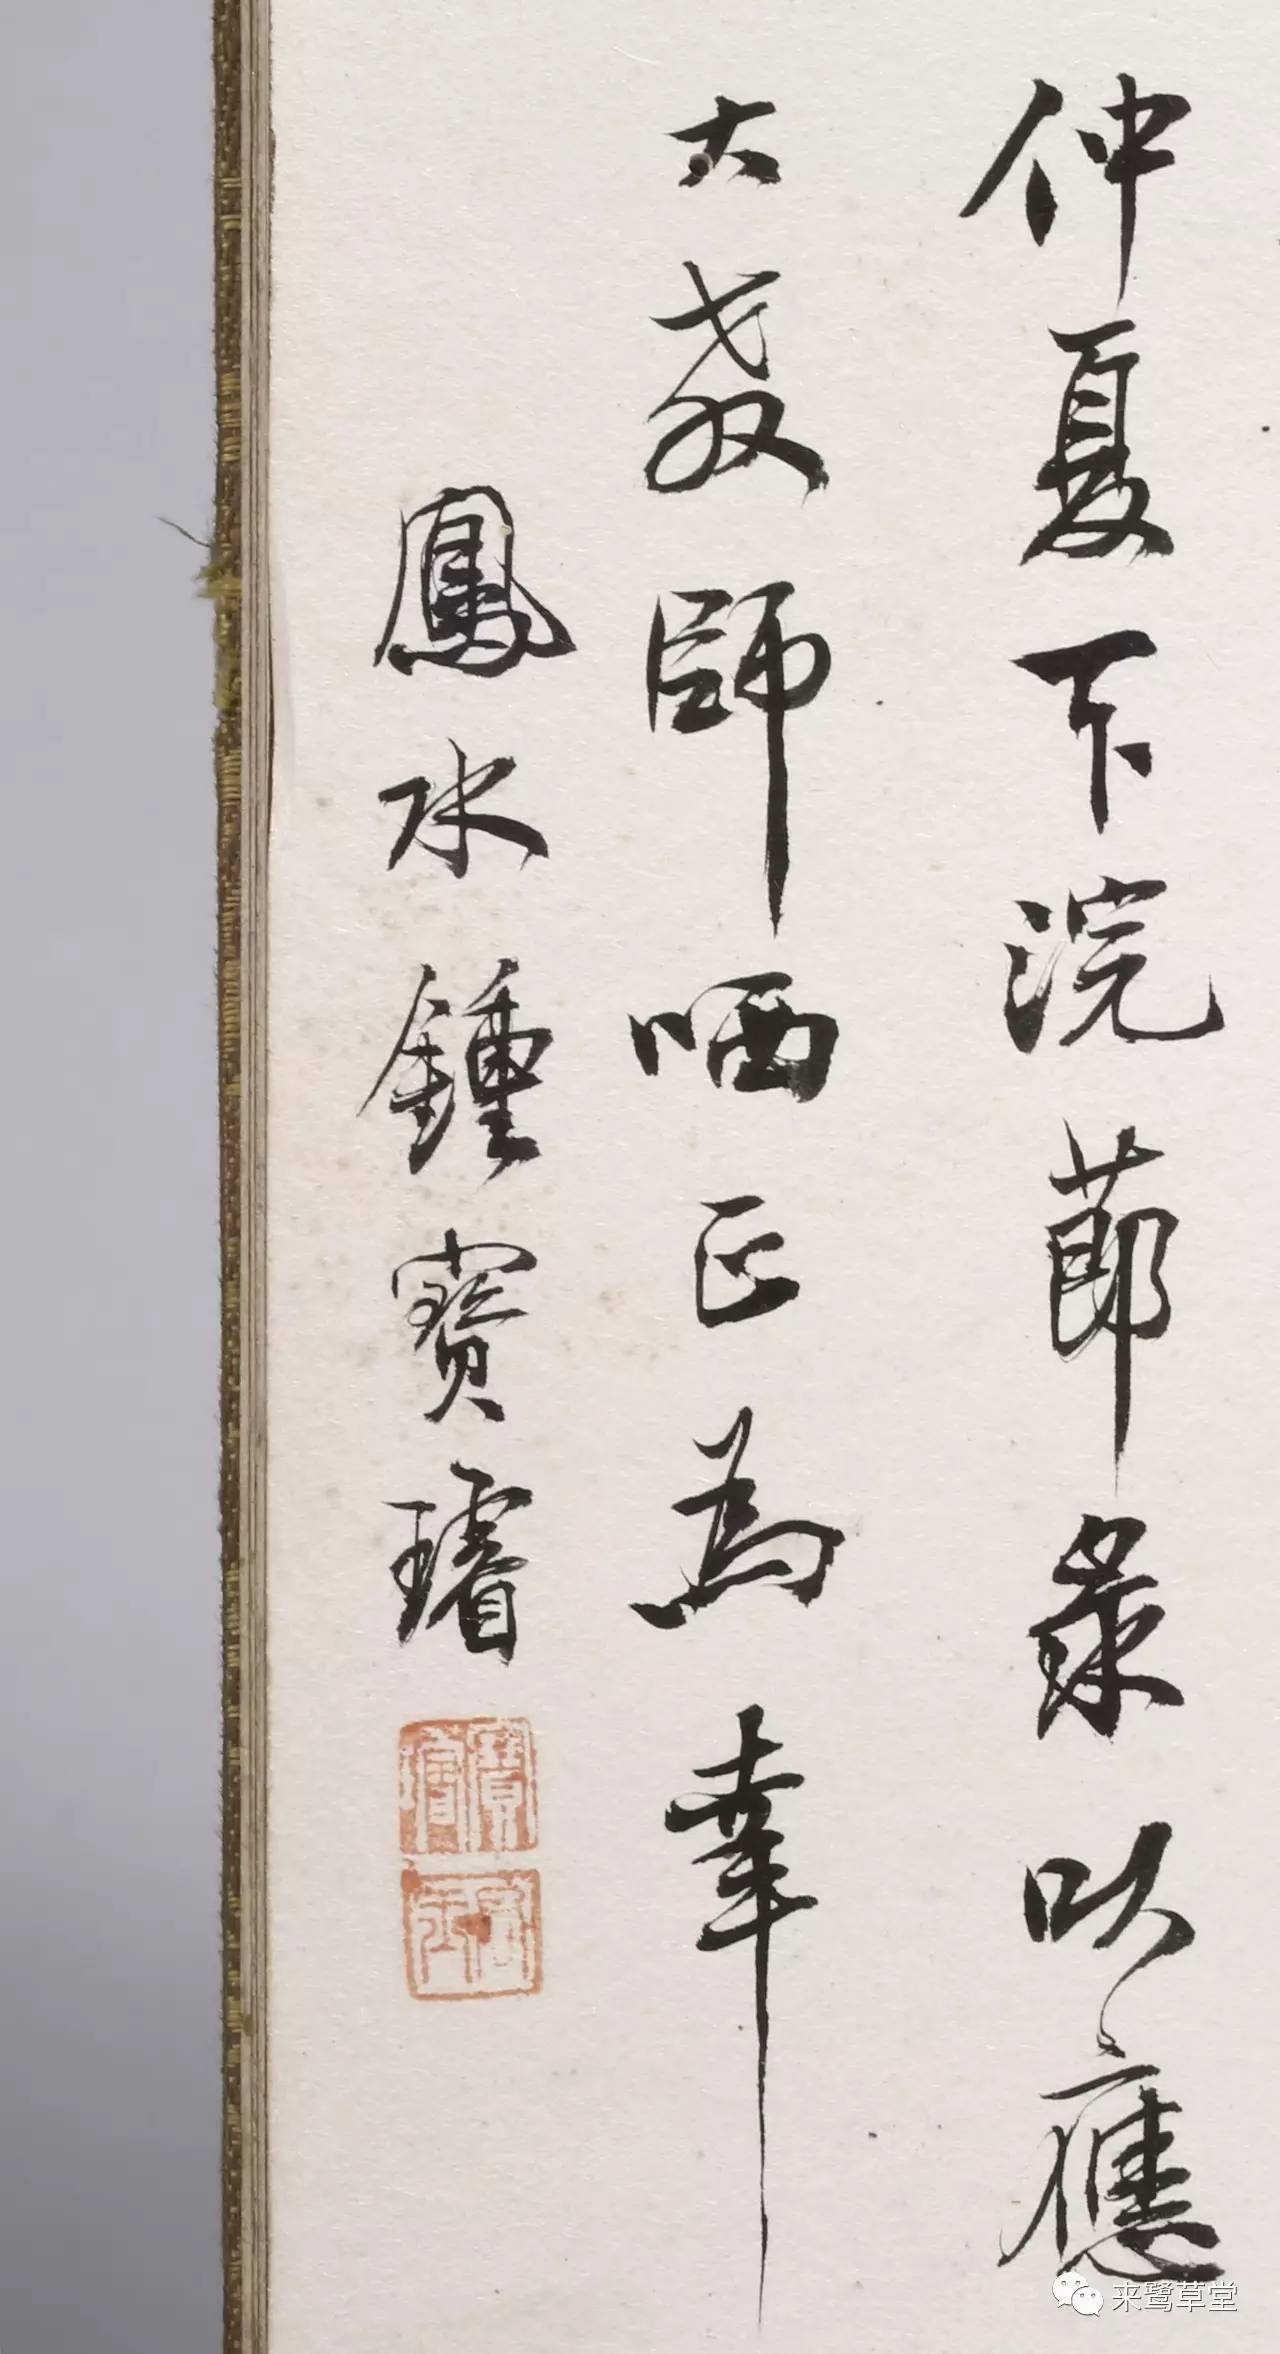 仲夏下浣節录以應
大教師哂正為幸
鳳水鍾寶璿
來鹭草堂